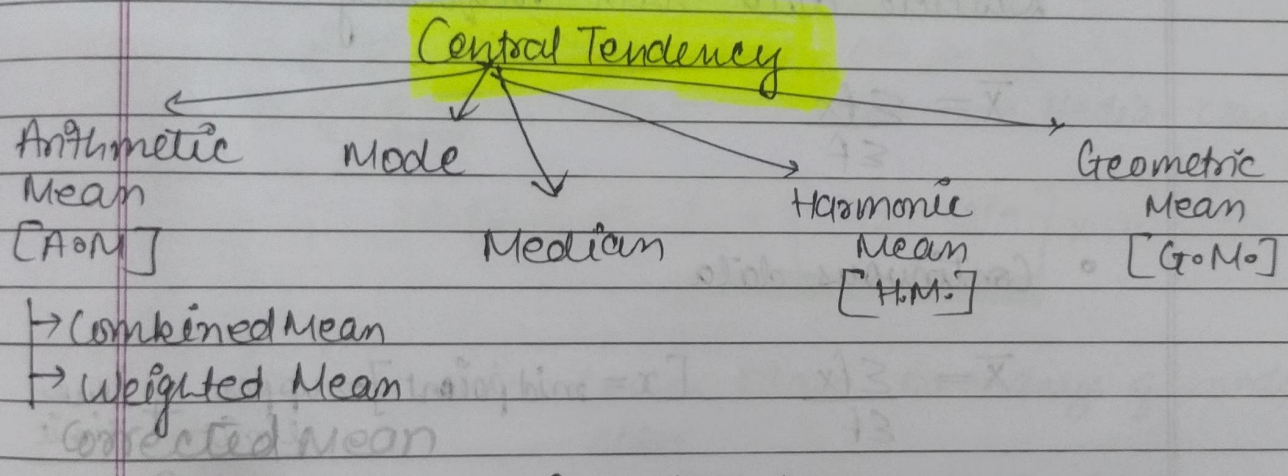 Central Tendency
Arithmetic
Mean
[A.M]
Mode
Median
Harmonic
Mean
[H.M.]
Geometric
Mean
[G.M.]
Combined Mean
Weighted Mean
Corrected Mean